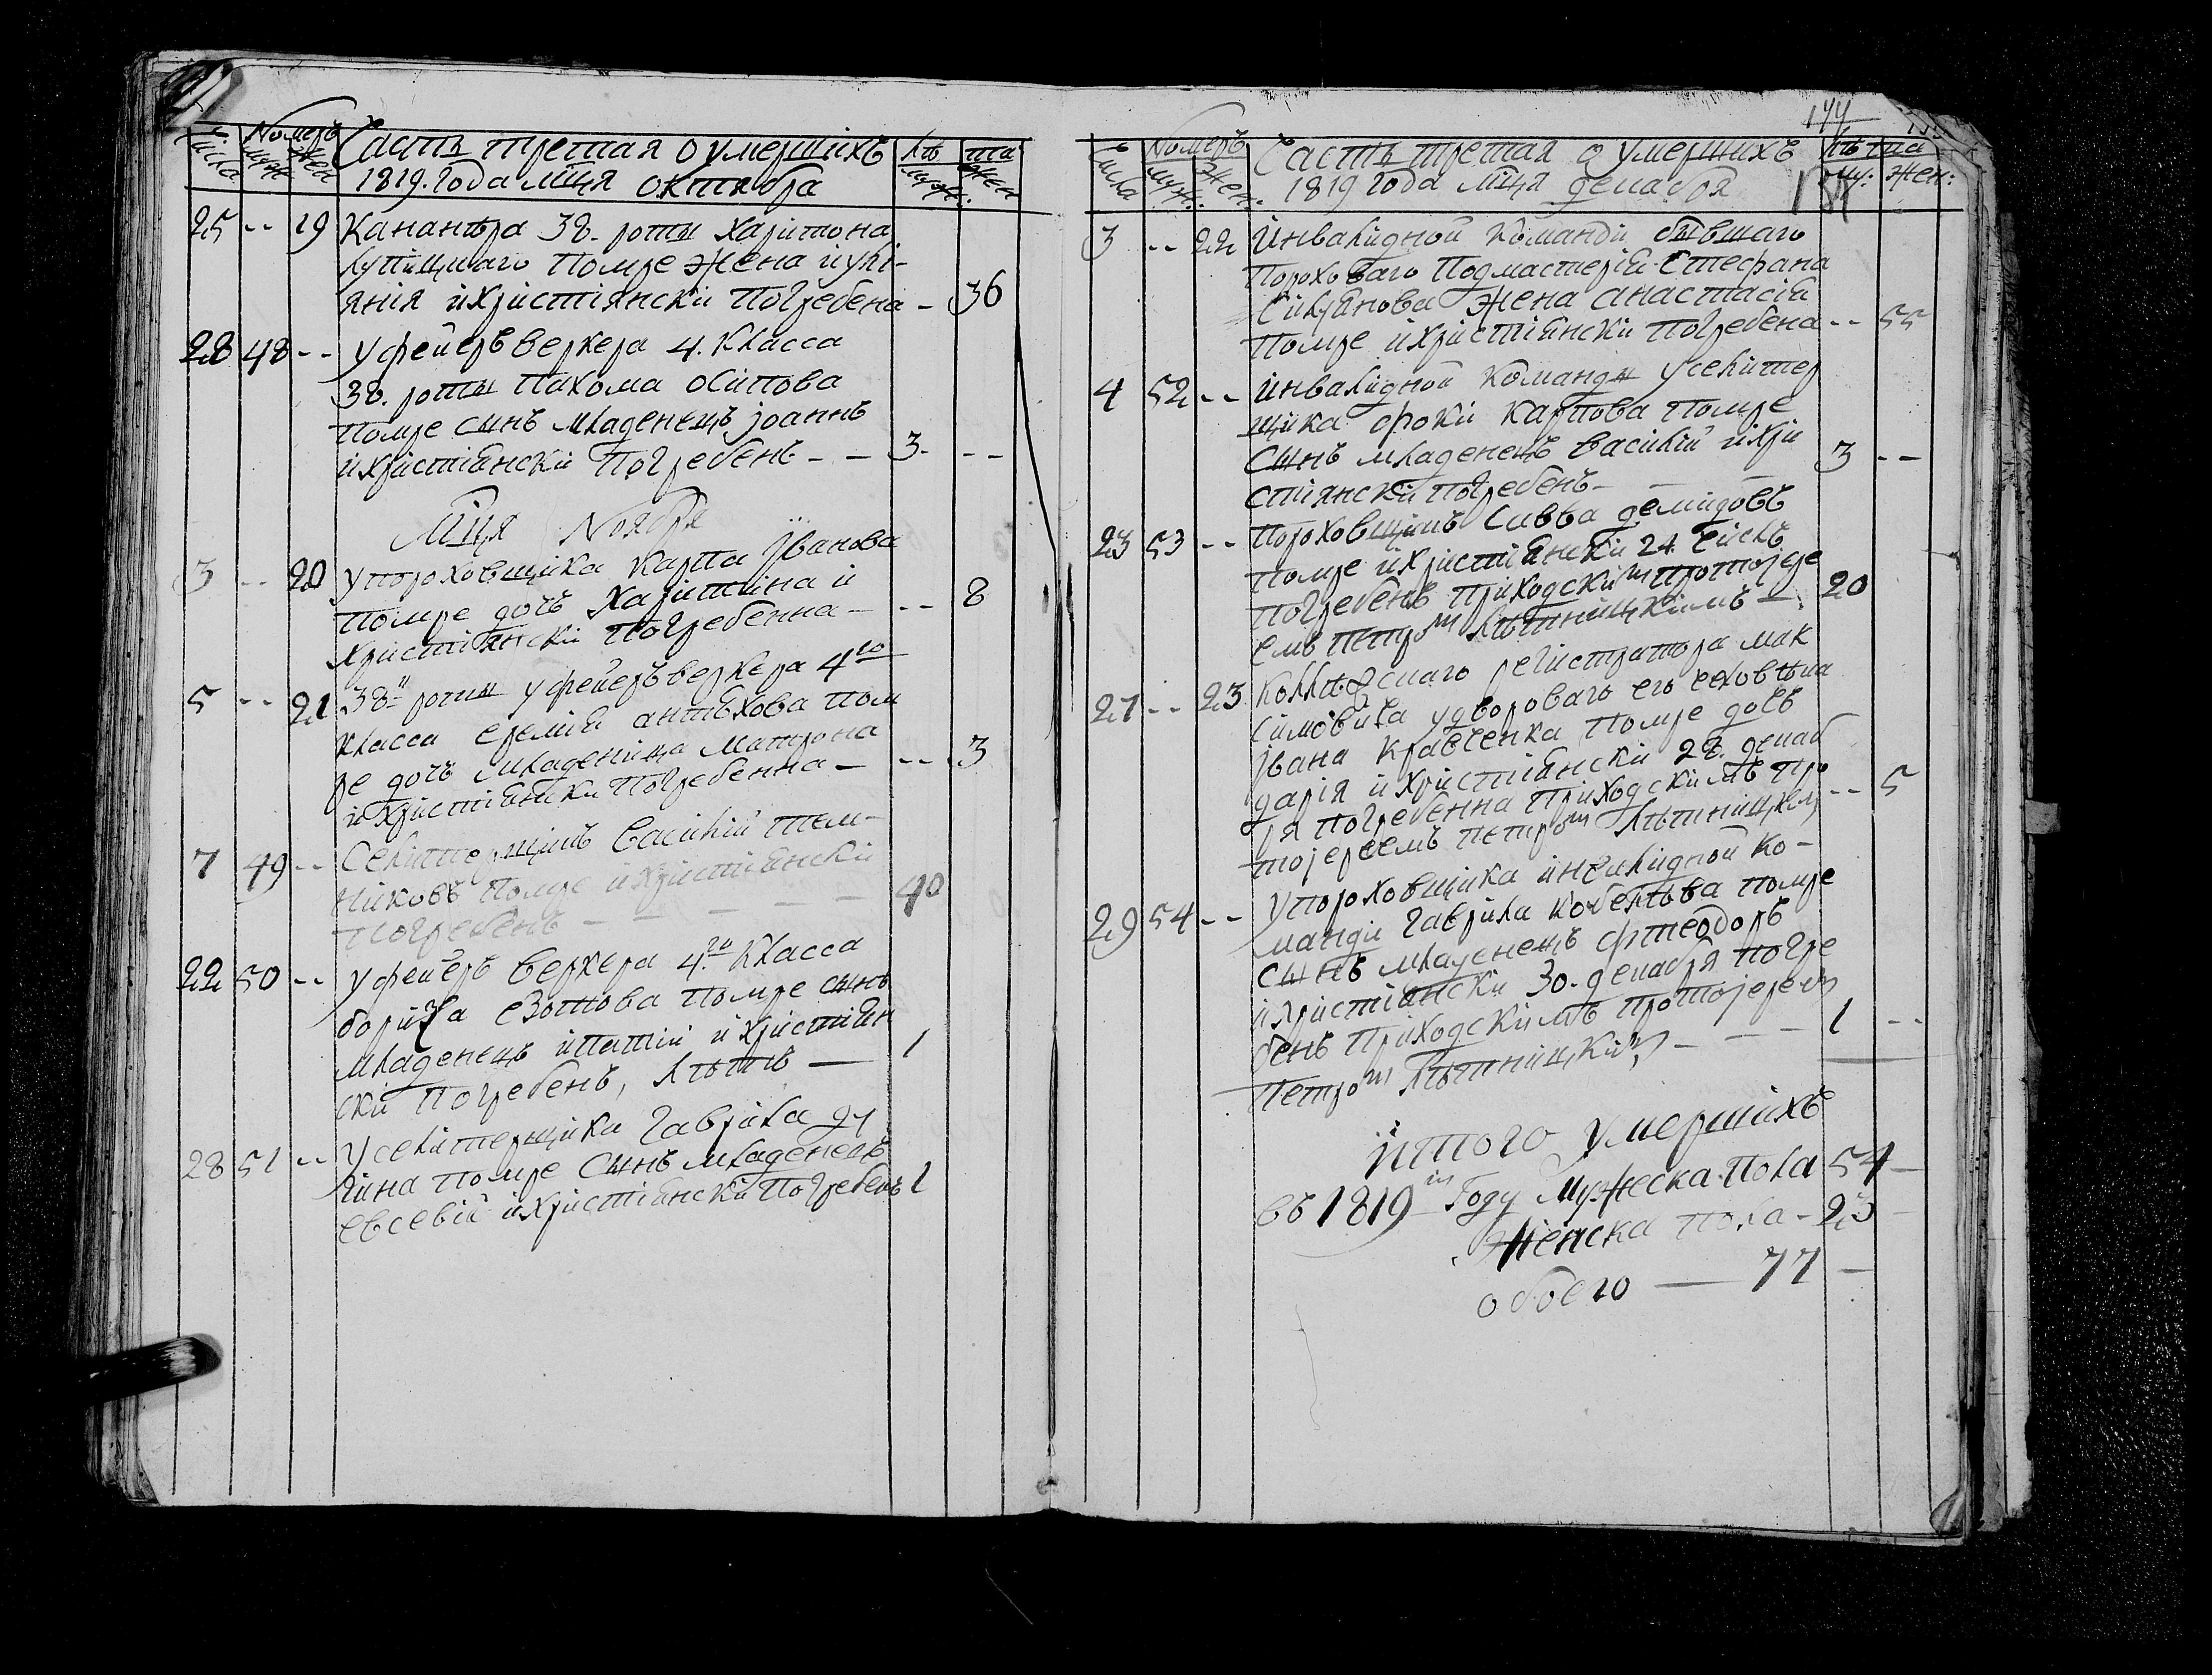 Числа Номеръ муж. жен Часть третая о умершихъ лѣ та муж. жен
1819. года мцⷭ҇я октября
25 -- 19 Кананѣра 38. роты Харитона
помре жена иулі-
янія и христіянски погребена - 36
28 48 -- у фейерверкера 4. класса
38. роты Пахома Осипова
помре сынъ младенецъ іоаннъ
и христіянски погребенъ - - 3. --
Мцⷭ҇я Ноября
3 -- 20 у пороховщика Карпа Іванова
помре дочь Харитина и
христіянски погребенна - -- 8
5 -- 21 38й роты у фейерверкера 4го
класса еремія антѣхова пом
ре дочь младеница матрона
и христіянски погребенна - -- 3
7 49 -- Селитерщикъ Василій тем-
никовъ помре и христіянски
погребенъ - - - - - 40
22 50 -- у фейерверкера 4.го класса
бориса езотова помре сынъ
младенецъ ипатій и христіян
ски погребенъ, лѣтъ — 1
28 51 -- у селитерщика Гавріла ду
гина помре сынъ младенецъ
евсевій и христіянски погребенъ 1
144
Числа Номеръ муж. жен. Часть третая о умершихъ лѣта му: жен:
1819 года мцⷭ҇я декабря
3 -- 22 Инвалидной команди бывшаго
пороховаго подмастерія Стефана
Силуянова жена анастасія
помре и христіянски погребена -- 55
4 52 -- инвалидной команды у селитер
щика фоки Карпова помре
сынъ младенецъ василій и хри 3 --
стіянски погребенъ -
23 53 -- пороховщикъ Савва демидовъ
помре и христіянски 24 числъ
погребенъ приходскимъ протоіере 20
емъ петромъ Лѣтницкимъ -
27 -- 23 Коллежскаго регистратора мак
симовича у двороваго его человѣка
івана кравченка помре дочь
дарія и христіянски 28. декаб
ря погребенна приходскимъ про -- 5
тоіереемъ петромъ Лѣтницкимъ
29 54 -- у пороховщика инвалидной ко-
манди Гавріла помре
сынъ младенецъ фтеодоръ
и христіянски 30. декабря погре
бенъ приходскимъ протоіереемъ 1 --
петромъ Лѣтницкимъ - - -
итого умершихъ
въ 1819м году мужеска пола 54 -
женска пола - 23 -
обоего — 77 -